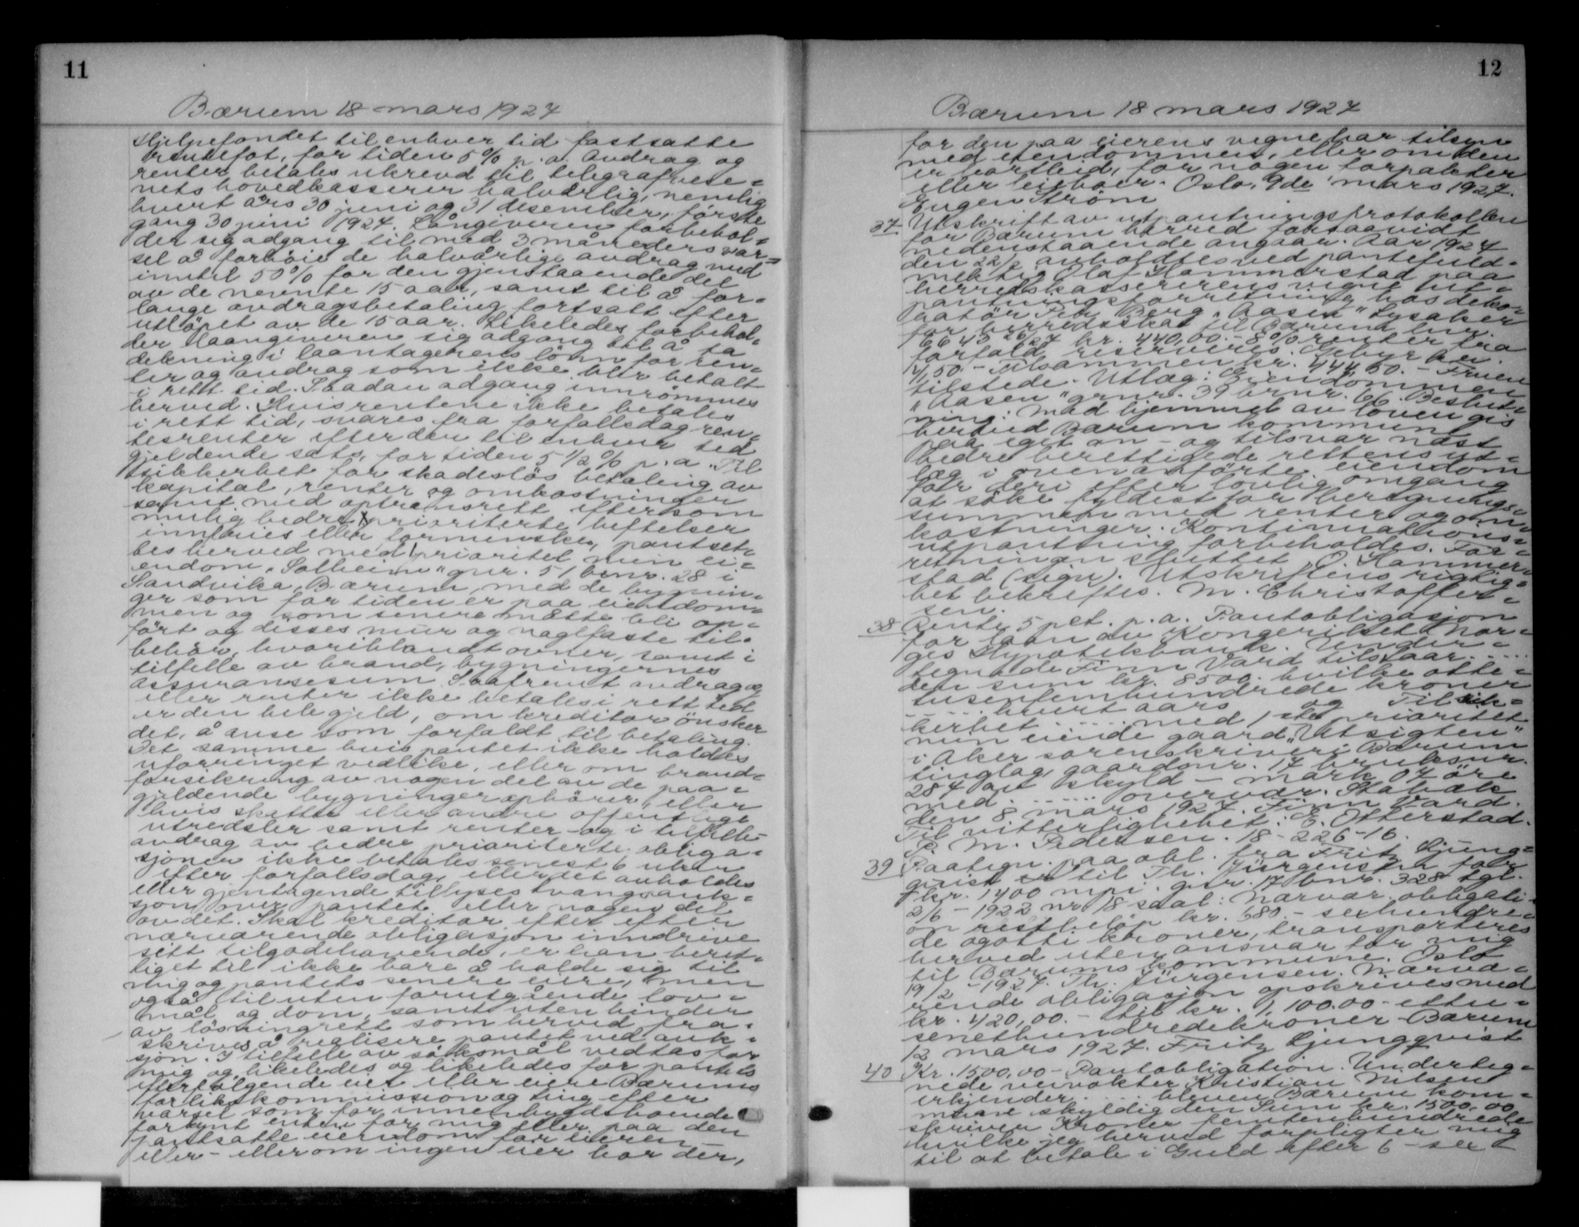 11
Bærum 18 mars 1927
Hjelpefondet til enhver tid fastsatte
rentefot, for tiden 5% p.a. Avdrag og
renter betales ukrevd til telegrafvese-
nets hovedkasserer halvårlig, nemlig
hvert års 30 juni og 31 desember, første
gang 30 juni 1927. Långiveren forbehol-
der sig adgang til med 3 måneders var-
sel å forhøie de halvårlige avdrag med
inntil 50% for den gjenstaaende del
av de nevnte 15 aar, samt til å for-
lange avdragsbetaling fortsatt efter
utløpet av de 15 aar. Likeledes forbehol-
der laangiveren sig adgang til å ta
dekning i laantagerens lønn for ren-
ter og avdrag som ikke blir betalt
i rett tid. Saadan adgang innrømmes
herved. Hvis rentene ikke betales
i rett tid, svares fra forfallsdag ren-
tesrenter efter den til enhver tid
gjeldende sats, for tiden 5 1/2 % p.a. Til
sikkerhet for skadesløs betaling av
kapital, renter og omkostninger
samt med optrinsrett eftersom
mulig bedre prioriterte heftelser
innfries eller forminskes, pantset-
tes herved med prioritet min ei-
endom "Solheim" gnr. 5 bnr. 28 i
Sandvika, Bærum med de bygnin-
ger som for tiden er paa eiendom-
men og som senere måtte bli op-
ført og disses mur og naglfaste til-
behør, hvoriblandt ovner, samt i
tilfelle av brand, bygningernes
assuransesum. Saafremt avdrag og
eller renter ikke betales i rett tid
er den hele gjeld, om kreditor ønsker
det, å anse som forfaldt til betaling.
Det samme hvis pantet ikke holdes
uforringet vedlike, eller om brand-
forsikring av nogen del av de paa-
gjeldende bygninger ophører, eller
hvis skatter eller andre offentlige
utredsler samt renter og i tilfelle
avdrag av bedre prioriterte obliga-
sjoner ikke betales senest 6 uker
efter forfallsdag, eller det anholdes
eller gjentagende tillyses tvangsauk-
sjon over pantet eller nogen del
av det. Skal kreditor efter
nærværende obligasjon inndrive
sitt tilgodehavende, er han beret-
tiget til ikke bare å holde sig til
mig og pantets senere eiere, men
også til uten forutgående lov-
mål og dom, samt uten hinder
av løsningsrett som herved fra-
skrives å realisere pantet ved auk-
sjon. I tilfelle av søksmål vedtas for
mig og likeledes og likeledes for pantets
efterfølgende eier eller eiere Bærums
forlikskommission og ting efter
varsel som for innenbygdsboende
forkynt enten for mig eller paa den
pantsatte eiendom for eieren -
eller - eller om ingen eier bor der,
12
Bærum 18 mars 1927
for den paa eierens vegne har tilsyn
med eiendommen, eller om den
er bortleid, for nogen forpakter
eller leieboer. Oslo, 9de mars 1927.
Eugen Strøm
37 Utskrift av utpantningsprotokollen
for Bærum herred forsaavidt
nedenstaaende angaar. Aar 1927
den 22/2 avholdtes ved pantefuld-
mektig Olaf Hammerstad paa
herredskassererens vegne ut-
pantningsforretning hos deko-
ratør Fritz Berg, "Aasen" Lysaker
for herredsskat til Bærum lnr.
6643 26/27 kr. 440,00.- 8% renter fra
forfald reserveres. Gebyr kr.
4,50.- Tilsammen kr. 444,50.- Fruen
tilstede. Utlæg: Eiendommen
"Aasen" gnr. 39 brnr. 66. Beslut-
ning: Med hjemmel av loven gis
herved Bærum kommune
paa eget an- og tilsvar næst
bedre berettigede rettens ut-
læg i ovenanførte eiendom
for deri efter lovlig omgang
at søke fyldest for beregnings-
summen med renter og om-
kostninger. Kontinuations-
utpantning forbeholdes. For-
retningen sluttet. O. Hammer-
stad (sign). Utskriftens rigtig-
het bekreftes. M. Christoffer-
sen.
38 Rente 5 pct. p.a. Pantobligasjon
for laan av Kongeriket Nor-
ges Hypotekbank. Under-
tegnede Finn Vard tilstaar ...
den sum kr. 8500. hvilke otte-
tusenfemhundrede kroner
...... hvert aars ... og ... Til sik-
kerhet ...... med 1ste prioritet
min eiende gaard "Utsigten"
i Aker sorenskriveri Bærum
tinglag gaardsnr. 17 bruksnr.
284 av skyld - mark 07 øre
med ......... overvær. Stabæk
den 8 mars 1927. Finn Vard.
Til vitterlighet: E. Otterstad.
P. M. Pedersen. 18-226-16.
39 Paategn. paa obl. fra Fritz Ljung-
quist til Th. Jürgensen for
kr. 1400 mpi. gnr. 17 bnr. 328 tgl.
2/6-1922 nr 18 saal: Nærvær. obligati-
on restbeløp kr. 680.- sekshundre-
de og otti kroner, transporteres
herved uten ansvar for mig
til Bærums kommune. Oslo
19/2-1927. Th. Jürgensen. Nærvæ-
rende obligasjon opskrives med
kr. 420,00.- til kr. 1,100.00 - ettu-
senethundredekroner - Bærum
12 mars 1927. Fritz Ljungqvist
40 Kr. 1500,00 - Pantobligation. Underteg-
nede veivokter Kristian Nilsen
erkjender ... Bærum kom-
mune skyldig den Sum kr. 1500,00
skriver Kroner femtenhundrede
hvilke jeg herved forpligter mig
til at betale i Guld efter 6 - sex -